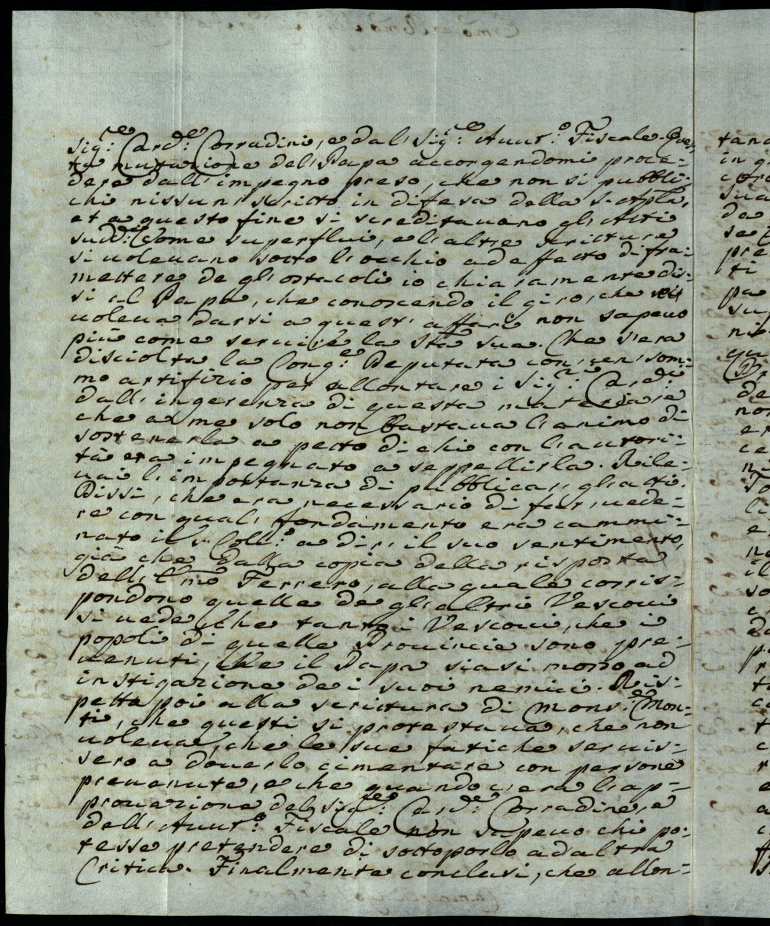 Sig.re Card.le Corradini, e dal Sig.re Audit.e Fiscale. Ques-
ta mutazione del Papa accorgendomi proce-
dere dall'impegno preso, che non si pubbli-
chi nissun scritto in difesa della S. Apla,
et a questo fine si screditavano gli Atti
sudd.i Come superflui, e l'altre scritture
si volevano sotto l'occhio ad effetto di fra-
mettere de gl'ostacoli io chiaramente dis-
si al Papa, che conoscendo il giro, che
voleva darsi a questi affari non sapevo
più come servire la Stà sua. Che s'era
disciolta la Cong.e Deputata con sen som-
mo artifizio per allontare i Sig.ri Card.li
dall'ingerenza di questa materia, e
che a me solo non bastava l'animo di
sostenerla a petto di chi con l'autori-
tà era impegnato a seppellirla. Rile-
vai l'importanza di pubblicar gli atti.
Dissi, che era necessario di far vede-
re con qual fondamento era cammi-
nato il S. Coll.o a dir il suo sentimento,
già che dalla copia della risposta
dell' Emo Ferrero, alla quale corris-
pondono quelle de gl'altri Vescovi
si vede, che tanto i Vescovi, che i
popoli di quelle Provincie sono pre-
venuti, che il Papa siasi mosso ad
instigazione de i suoi nemici. Ris-
petto poi alla scrittura di Mons.re Mon-
ti, che questi si protestava, che non
voleva, che le sue fatiche servis-
sero a doverlo cimentare con persone
prevenute, e che quando c'era l'ap-
provazione del Sig.re Card.le Corradini, e
dell'Audit.e Fiscale non sapevo chi po-
tesse pretendere di sottoporlo ad altra
Critica. Finalmente conclusi, che allon-